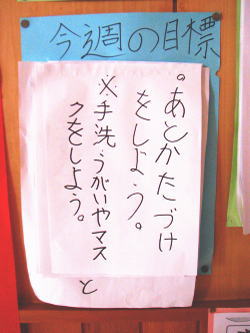 今週の目標
。あとかたづけ
をしよう。
※手洗、うがいやマス
クをしよう。
と